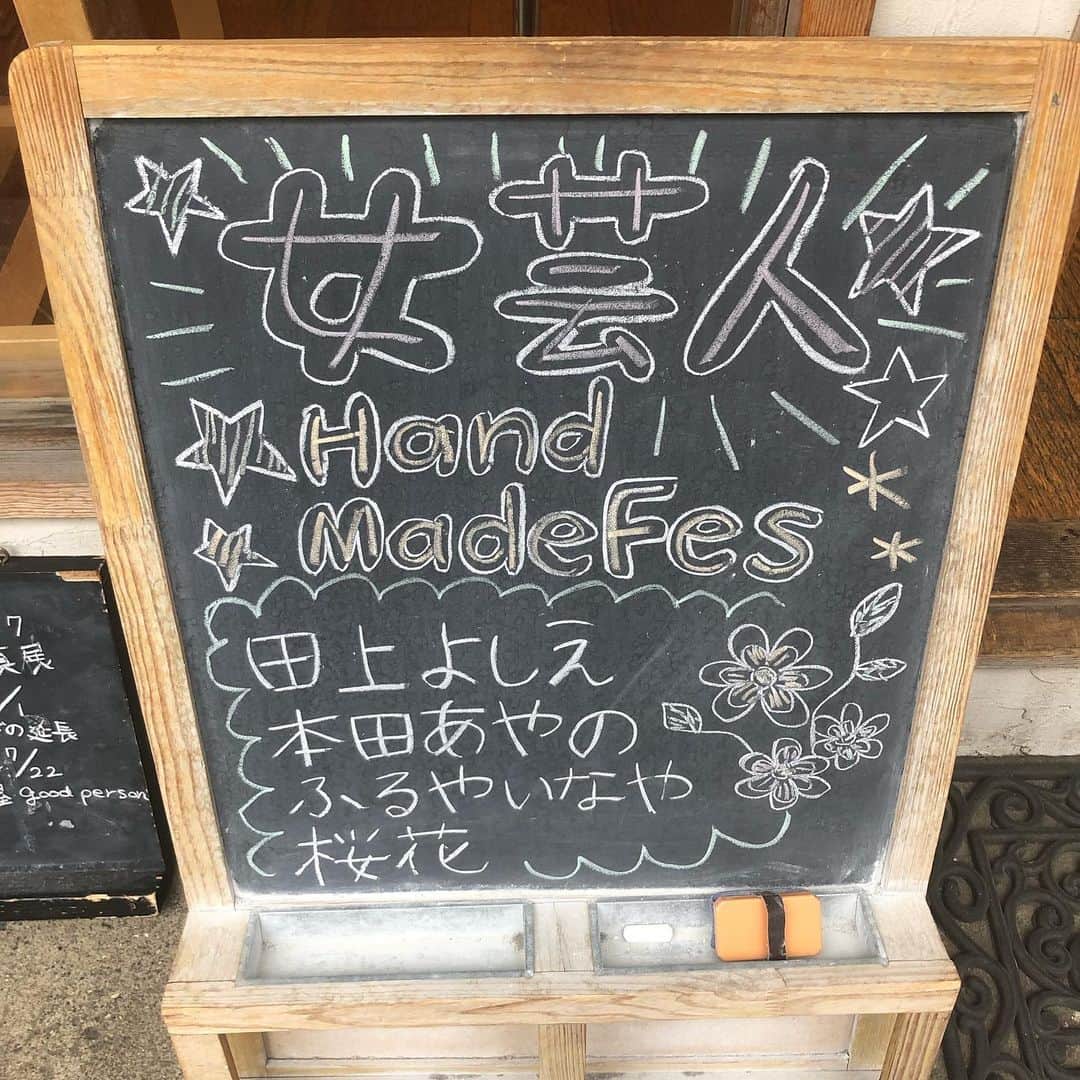 女芸人
Hand
MadeFes
田上よしえ
本田あやの
ふるやいなや
桜花
7
展
の延長
7/22
good person